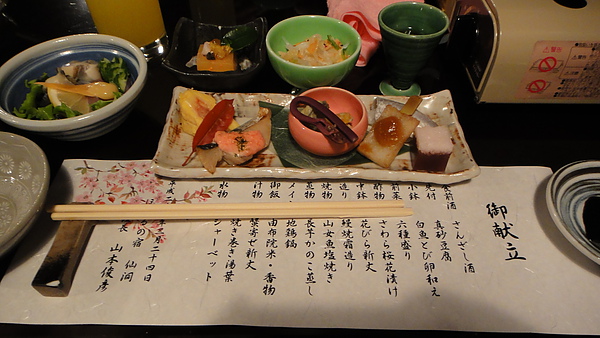 御献立
食前酒 さんざし酒
先付 真砂豆腐
小鉢 白魚とび卵和え
前菜 六種盛り
酢物 さわら桜花漬け
中鉢 花びら新丈
造り 焼霜造り
焼物 山女魚塩焼き
蒸物 長芋かのこ蒸し
メイン 地鶏鍋
御飯 由布院米・香物
汁物 蟹寄せ新丈
焼き巻き湯葉
水物 シャーベット
二十四日
の宿
長 山本俊彦